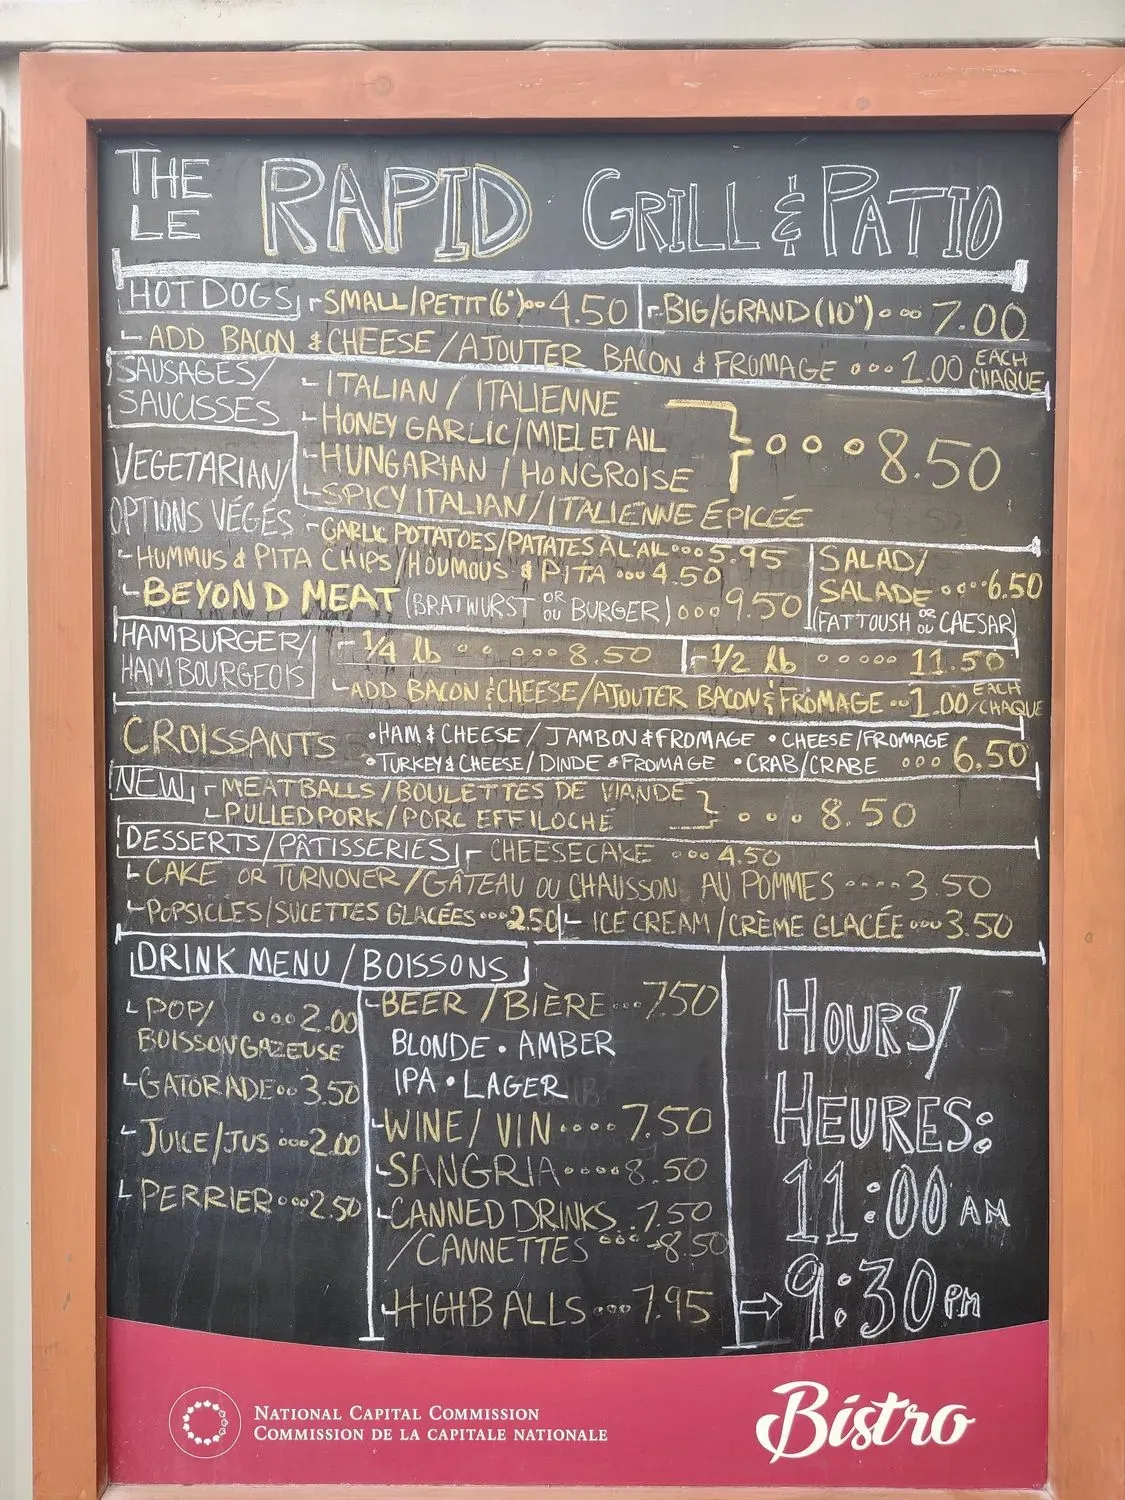 THE
LE RAPID GRILL & PATIO
HOT DOGS SMALL/PETIT (6") 4.50 BIG/GRAND (10") 7.00
ADD BACON & CHEESE/AJOUTER BACON & FROMAGE 1.00 EACH CHAQUE
SAUSAGES/
SAUCISSES
ITALIAN / ITALIENNE
HONEY GARLIC/MIEL ET AIL
HUNGARIAN / HONGROISE
SPICY ITALIAN/ITALIENNE ÉPICÉE
8.50
VEGETARIAN/
OPTIONS VÉGÉS
GARLIC POTATOES/PATATES À L'AIL 5.95
HUMMUS & PITA CHIPS/HOUMOUS & PITA 4.50
BEYOND MEAT (BRATWURST OR OU BURGER) 9.50
SALAD/
SALADE 6.50
(FATTOUSH OR OU CAESAR)
HAMBURGER/
HAMBOURGEOIS
1/4 lb 8.50 1/2 lb 11.50
ADD BACON & CHEESE/AJOUTER BACON & FROMAGE 1.00 EACH/CHAQUE
CROISSANTS
• HAM & CHEESE / JAMBON & FROMAGE • CHEESE/FROMAGE
• TURKEY & CHEESE/ DINDE & FROMAGE • CRAB/CRABE 6.50
NEW
MEATBALLS/BOULETTES DE VIANDE
PULLED PORK/PORC EFFILOCHÉ
8.50
DESSERTS/PÂTISSERIES CHEESECAKE 4.50
CAKE OR TURNOVER/GÂTEAU OU CHAUSSON AU POMMES 3.50
POPSICLES/SUCETTES GLACÉES 2.50 ICE CREAM/CRÈME GLACÉE 3.50
DRINK MENU/BOISSONS
POP/ 2.00
BOISSON GAZEUSE
GATORADE 3.50
JUICE/JUS 2.00
PERRIER 2.50
BEER / BIÈRE 7.50
BLONDE • AMBER
IPA • LAGER
WINE/ VIN 7.50
SANGRIA 8.50
CANNED DRINKS 7.50
/CANNETTES → 8.50
HIGHBALLS 7.95
HOURS/
HEURES:
11:00 AM
→ 9:30 PM
NATIONAL CAPITAL COMMISSION
COMMISSION DE LA CAPITALE NATIONALE
Bistro